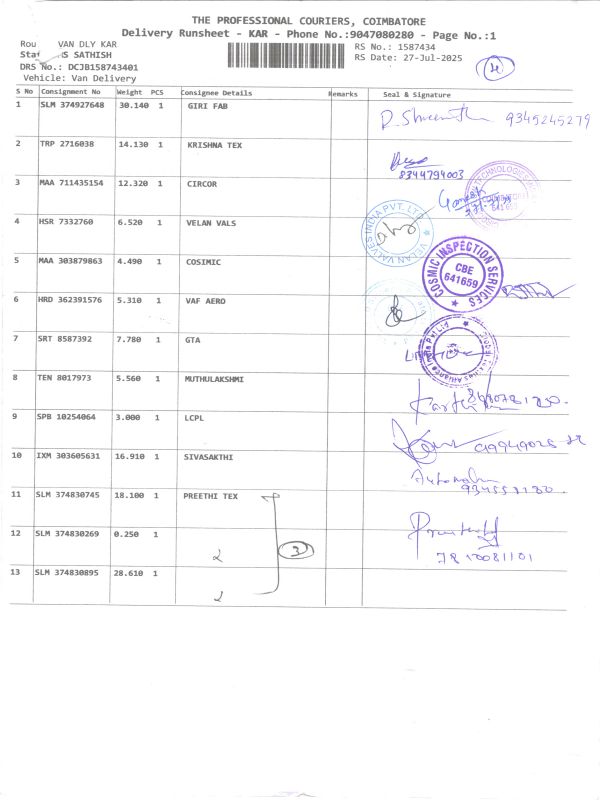 THE PROFESSIONAL COURIERS, COIMBATORE
Delivery Runsheet - KAR - Phone No.:9047080280 - Page No.:1
Rou VAN DLY KAR
RS No.: 1587434
Staf S SATHISH
RS Date: 27-Jul-2025
DRS No.: DCJB158743401
Vehicle: Van Delivery
S No Consignment No Weight PCS Consignee Details Remarks Seal & Signature
1 SLM 374927648 30.140 1 GIRI FAB 9345245279
2 TRP 2716038 14.130 1 KRISHNA TEX
8344794003
3 MAA 711435154 12.320 1 CIRCOR
4 HSR 7332760 6.520 1 VELAN VALS
VELAN VALVES INDIA PVT. LTD
5 MAA 303879863 4.490 1 COSIMIC
COSMIC INSPECTION SERVICES
CBE
641659
6 HRD 362391576 5.310 1 VAF AERO
7 SRT 8587392 7.780 1 GTA
8 TEN 8017973 5.560 1 MUTHULAKSHMI
9 SPB 10254064 3.000 1 LCPL
10 IXM 303605631 16.910 1 SIVASAKTHI
11 SLM 374830745 18.100 1 PREETHI TEX
12 SLM 374830269 0.250 1
3
13 SLM 374830895 28.610 1